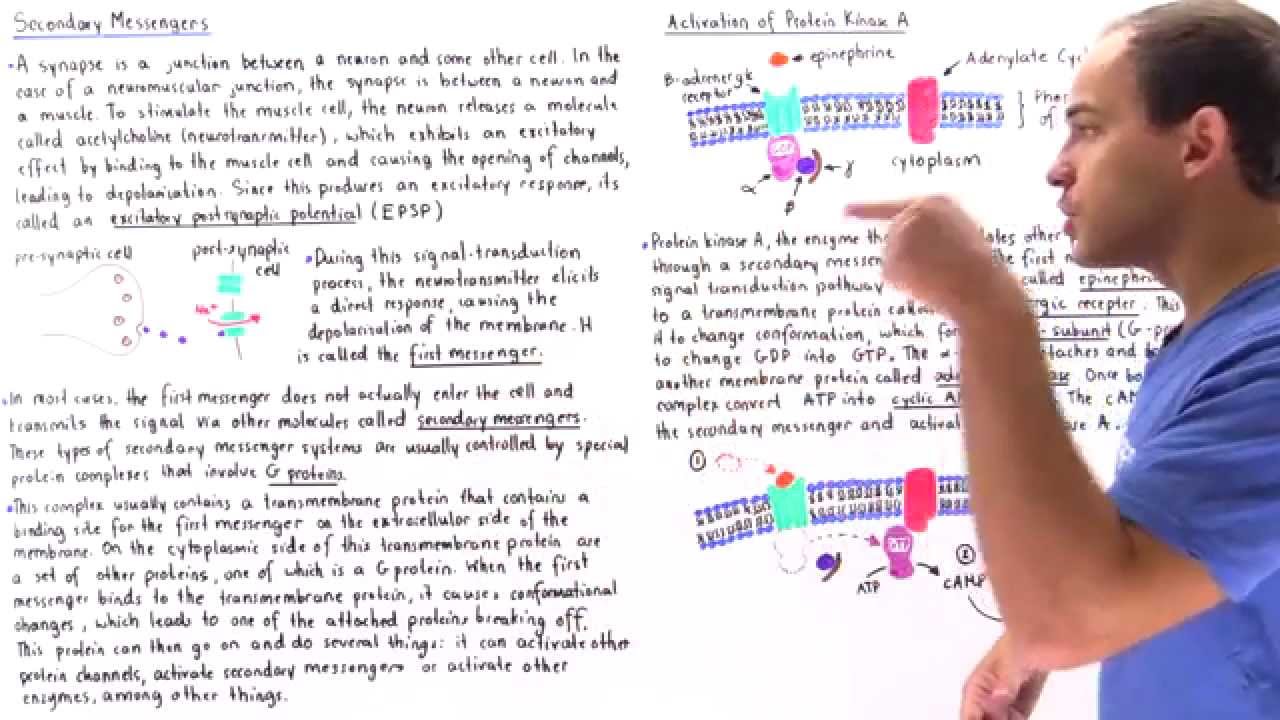 Secondary Messengers
• A synapse is a junction between a neuron and some other cell. In the
case of a neuromuscular junction, the synapse is between a neuron and
a muscle. To stimulate the muscle cell, the neuron releases a molecule
called acetylcholine (neurotransmitter), which exhibits an excitatory
effect by binding to the muscle cell and causing the opening of channels,
leading to depolarization. Since this produces an excitatory response, its
called an excitatory postsynaptic potential (EPSP)
pre-synaptic cell
post-synaptic
cell
Na+
• During this signal-transduction
process, the neurotransmitter elicits
a direct response, causing the
depolarization of the membrane. It
is called the first messenger.
• In most cases, the first messenger does not actually enter the cell and
transmits the signal via other molecules called secondary messengers.
These types of secondary messenger systems are usually controlled by special
protein complexes that involve G proteins.
• This complex usually contains a transmembrane protein that contains a
binding site for the first messenger on the extracellular side of the
membrane. On the cytoplasmic side of this transmembrane protein are
a set of other proteins, one of which is a G protein. When the first
messenger binds to the transmembrane protein, it causes conformational
changes, which leads to one of the attached proteins breaking off.
This protein can then go on and do several things: it can activate other
protein channels, activate secondary messengers or activate other
enzymes, among other things.
Activation of Protein Kinase A
epinephrine
Adenylate Cyc
B-adrenergic
receptor
GDP
} Phos
of
cytoplasm
α
β
γ
• Protein kinase A, the enzyme th lates other
through a secondary messen the first
signal transduction pathway called epinephri
to a transmembrane protein calle rgic receptor. This
it to change conformation, which for - subunit (G-pr
to change GDP into GTP. The α- taches and
another membrane protein called ade ase. Once bo
complex convert ATP into cyclic A The cAM
the secondary messenger and activa ase A.
①
GTP
②
ATP
cAMP